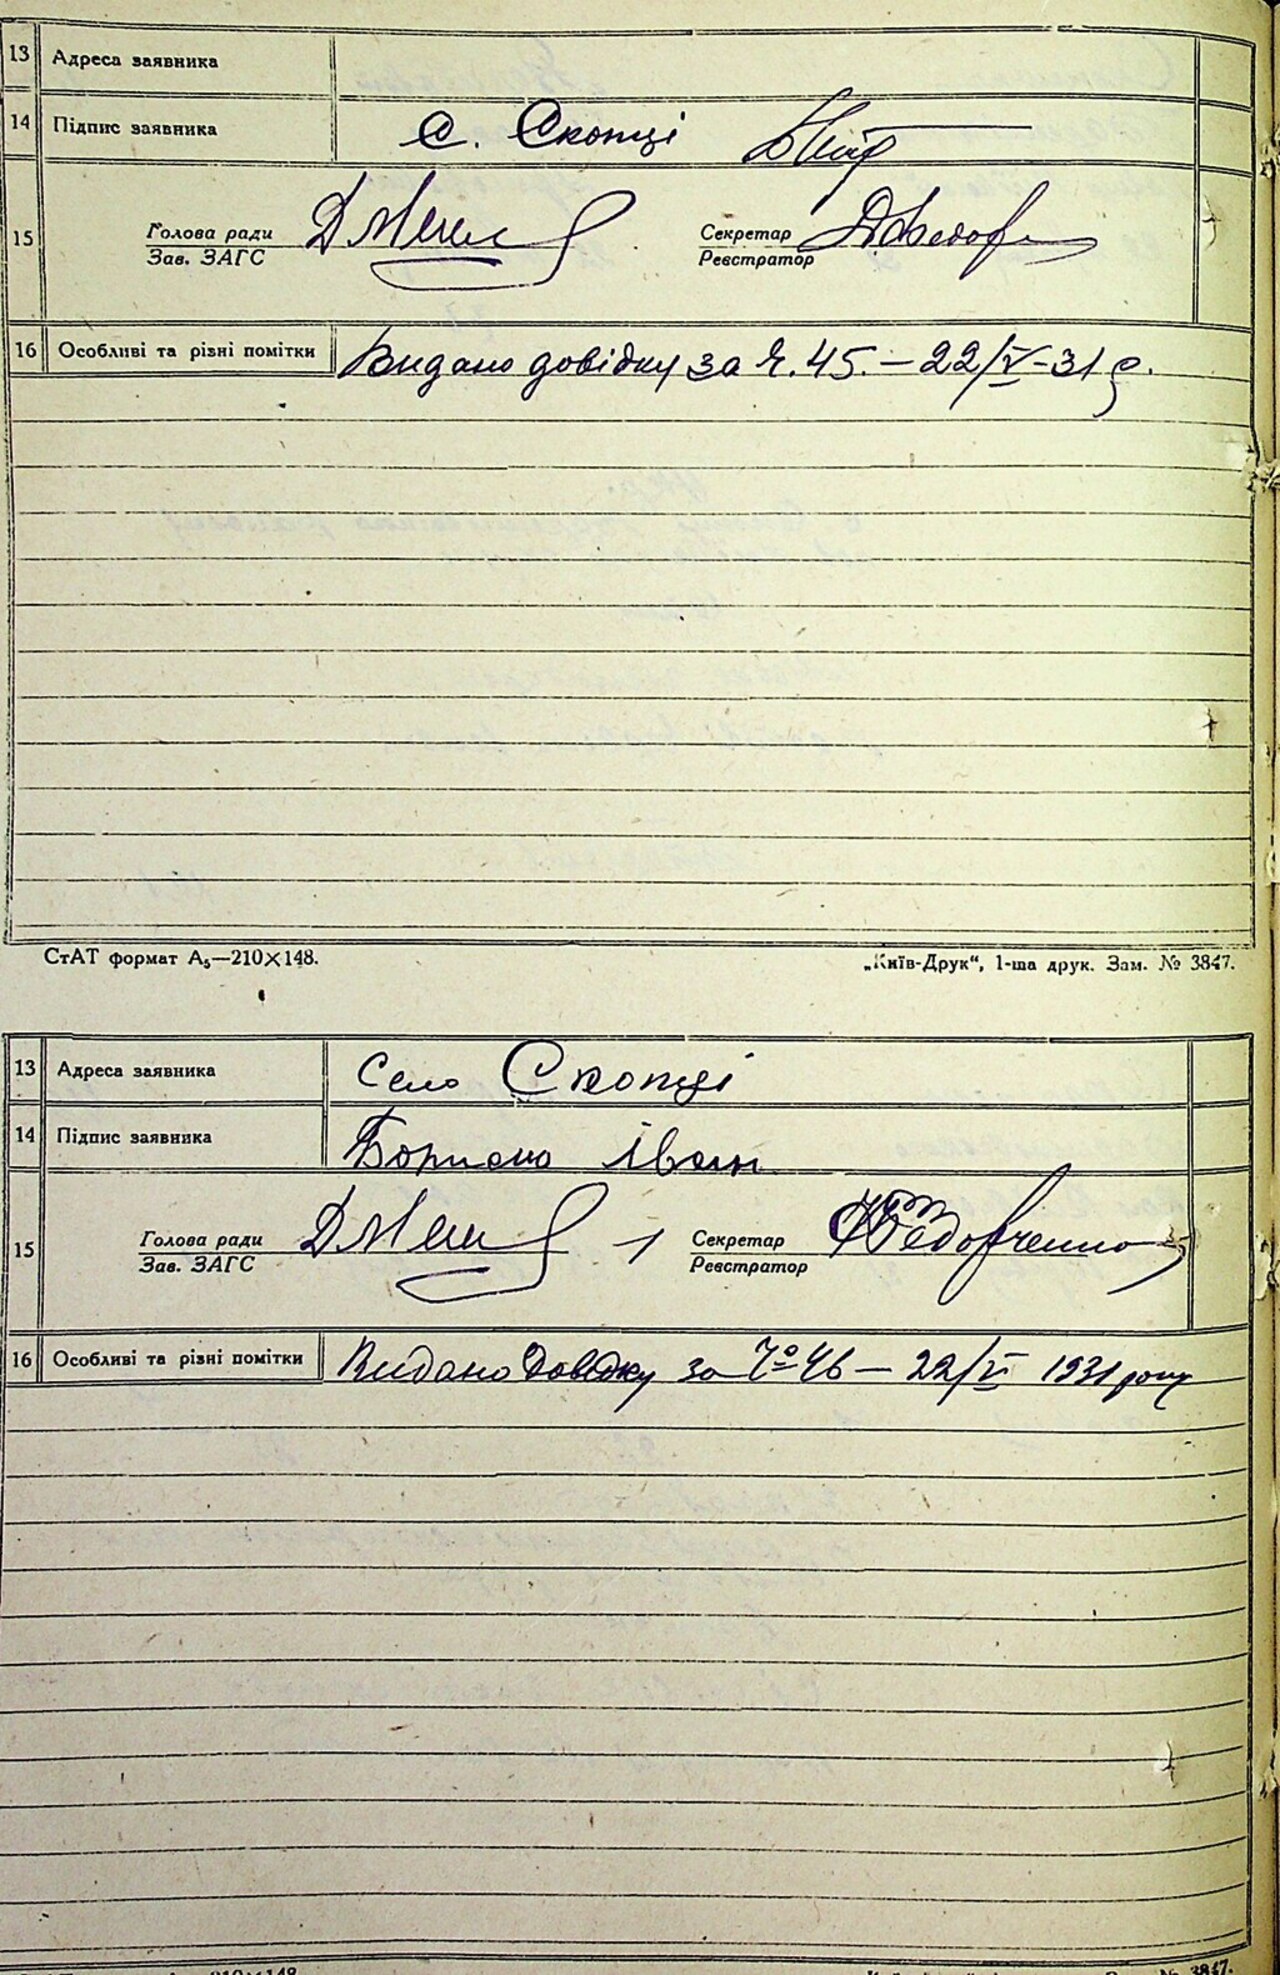 13 Адреса заявника
14 Підпис заявника с. Скопці
15 Голова ради Секретар
Зав. ЗАГС Реєстратор
16 Особливі та різні помітки Видано довідку за Ч. 45. – 22/V-31 р.
СтАТ формат А₅—210×148. „Київ-Друк“, 1-ша друк. Зам. № 3847.
13 Адреса заявника Село Скопці
14 Підпис заявника Іван
15 Голова ради Секретар Федорченко
Зав. ЗАГС Реєстратор
16 Особливі та різні помітки Видано Довідку за Ч° 46 — 22/V 1931 року
210×148 № 3847.